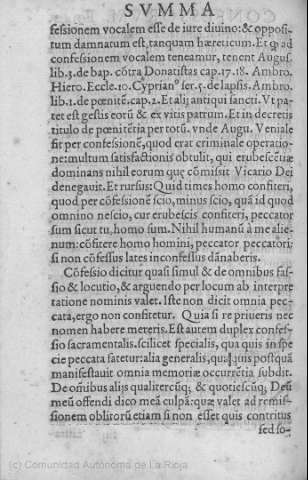 SVMMA
fessionem vocalem esse de iure diuino: & opposi-
tum damnatum est, tanquam hæreticum. Et ꝙ ad
confessionem vocalem teneamur, tenent Augus.
lib.5. de bap. cõtra Donatistas cap.17.18. Ambro.
Hiero. Eccle.10. Cyprianº ser.5. de lapsis. Ambro.
lib.1. de pœnitẽ. cap.2. Et alij antiqui sancti. Vt pa-
tet est gestis eorũ & ex vitis patrum. Et in decretis
titulo de pœnitẽtia per totũ. vnde Augu. Veniale
fit per confessionẽ, quod erat criminale operatio-
ne: multum satisfactionis obtulit, qui erubescẽtiæ
dominans nihil eorum quę cõmissit Vicario Dei
denegauit. Et rursus: Quid times homo confiteri,
quod per cõfessionẽ scio, minus scio, quã id quod
omnino nescio, cur erubescis confiteri, peccator
sum sicut tu, homo sum. Nihil humanũ à me alie-
num: cõfitere homo homini, peccator peccatori:
si non cõfessus lates inconfessus dãnaberis.
Cõfessio dicitur quasi simul & de omnibus fas-
sio & locutio, & arguendo per locum ab interpre
tatione nominis valet. Iste non dicit omnia pec-
cata, ergo non confitetur. Quia si re priueris nec
nomen habere meteris. Est autem duplex confes-
sio sacramentalis. scilicet specialis, qua quis in spe
cie peccata fatetur: alia generalis, qu: quis postquã
manifestauit omnia memoriæ occurrẽtia subdit.
De oĩnibus alijs qualitercũq; & quotiescũq; Deũ
meũ offendi dico meã culpã: quæ valet ad remis-
sionem oblitorũ etiam si non esset quis contritus
sed so-
(c) Comunidad Autónoma de La Rioja